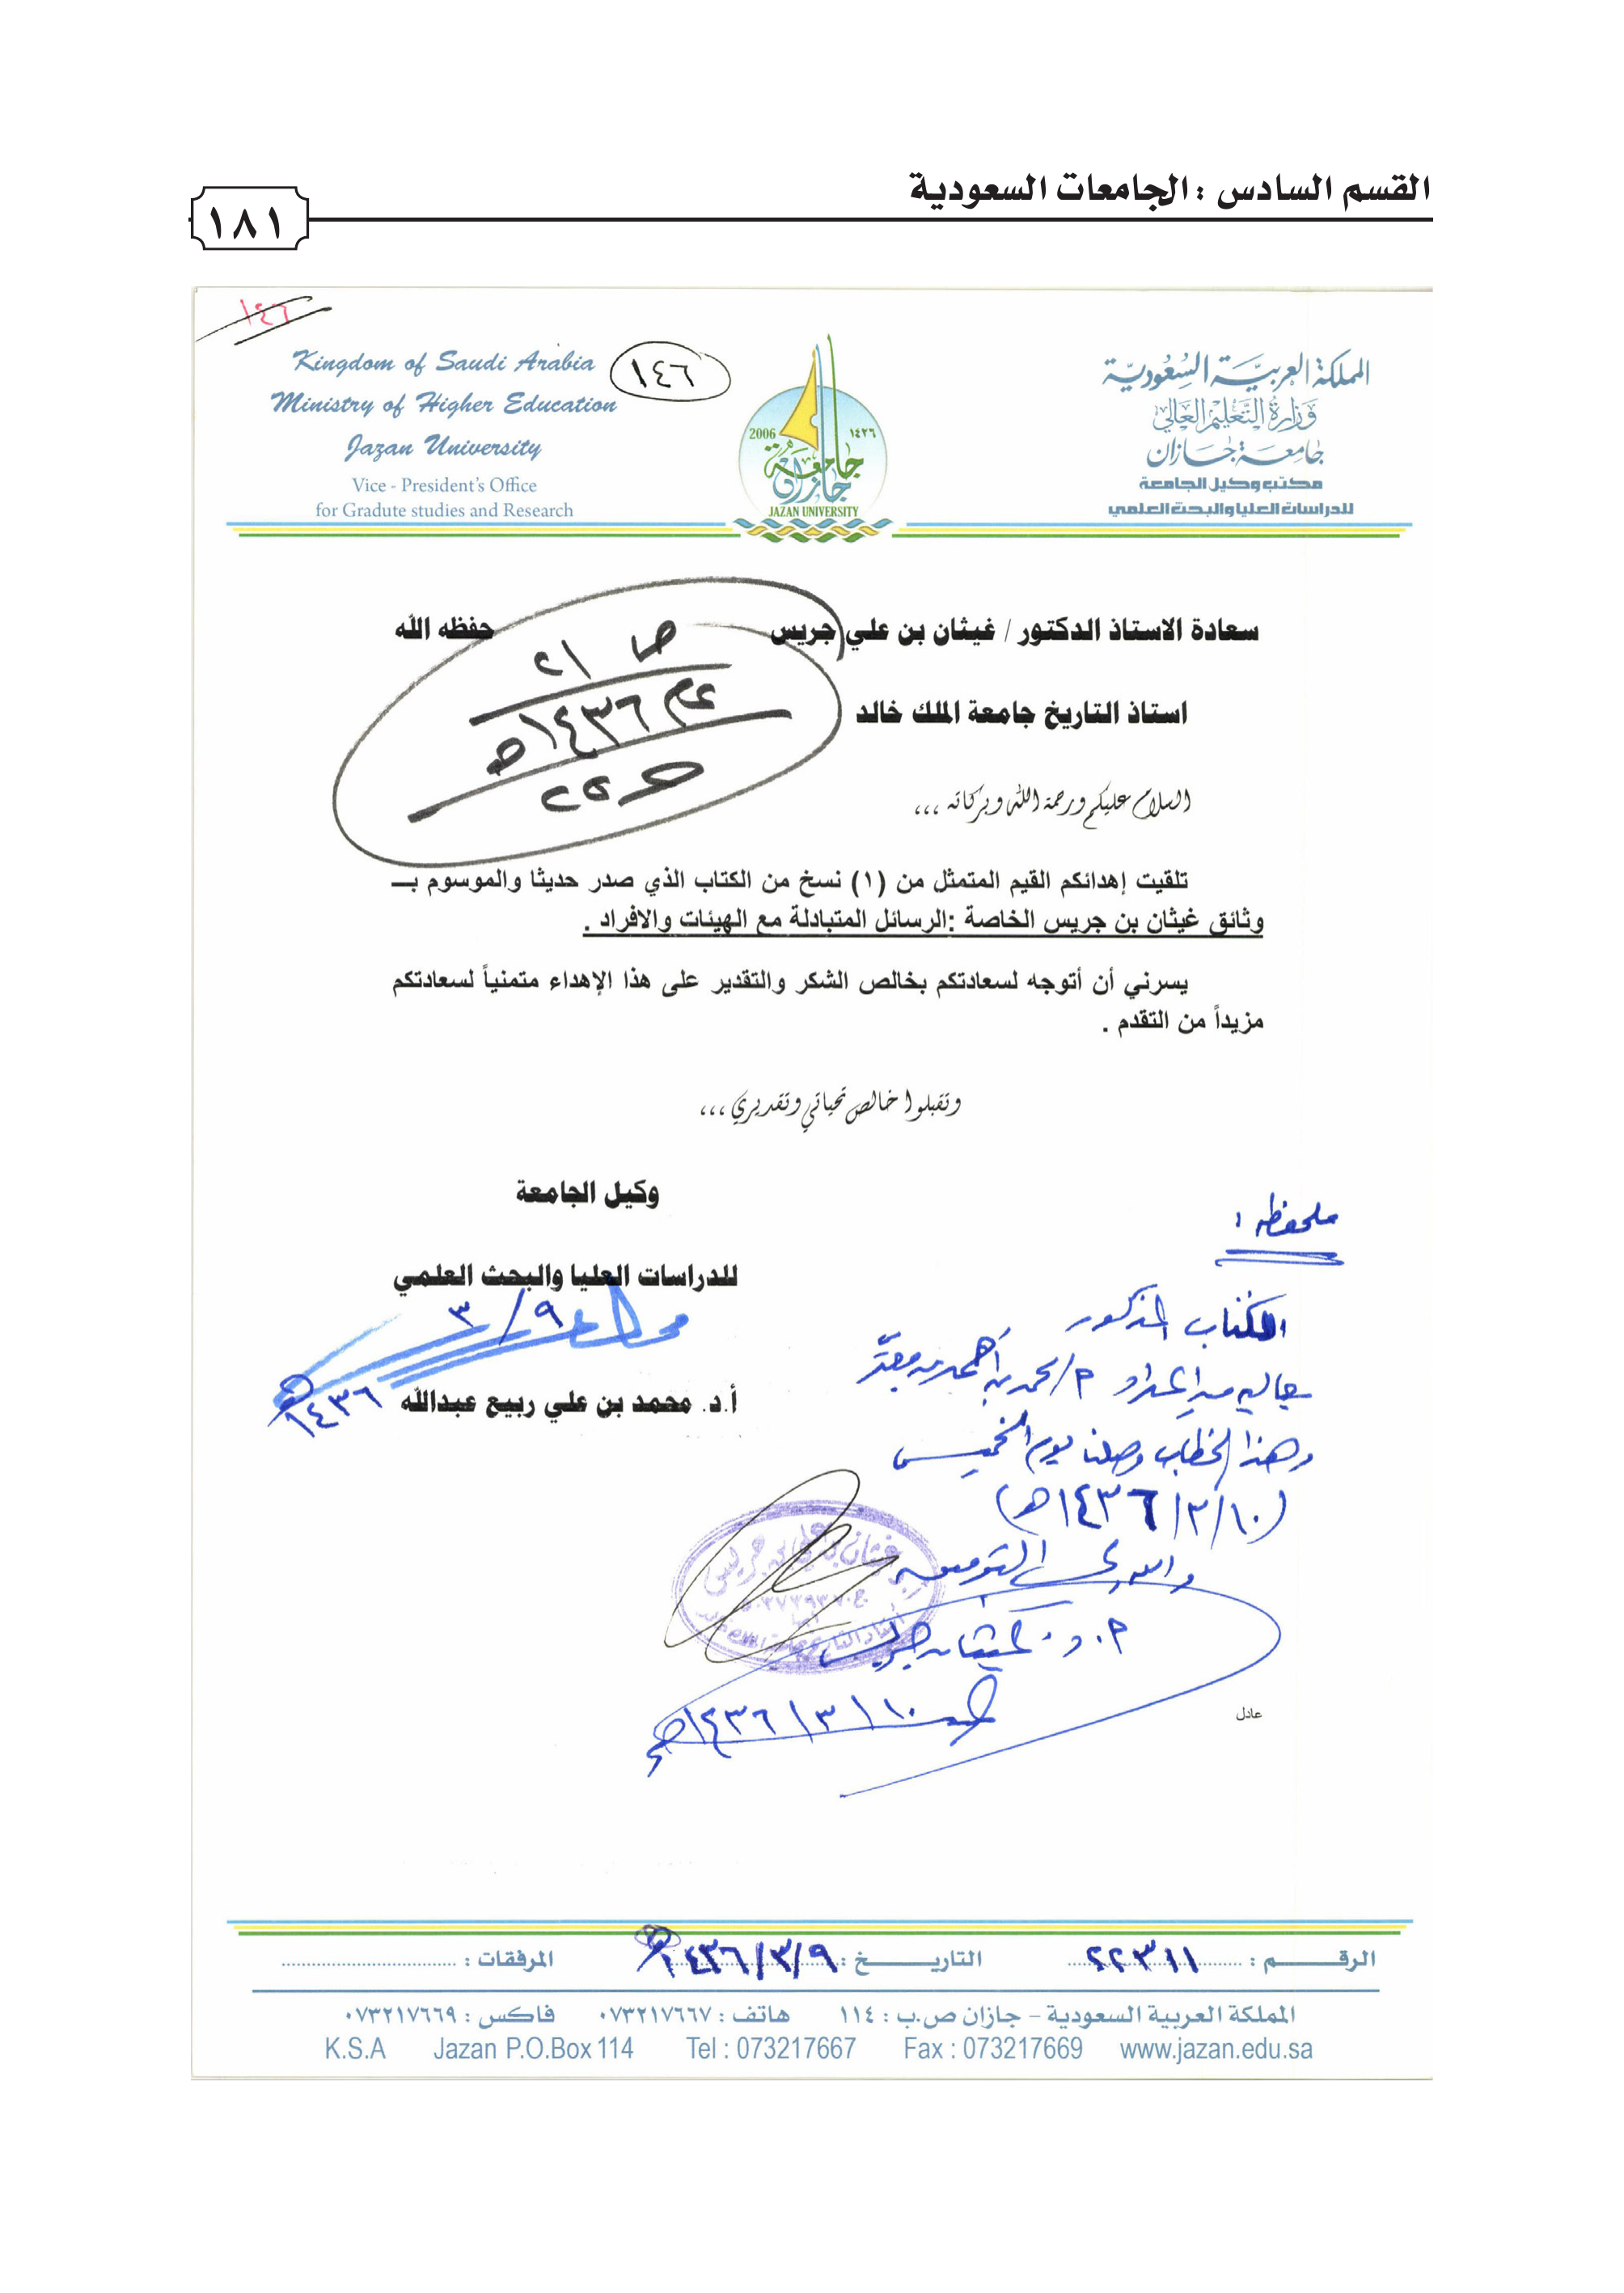 القسم السادس : الجامعات السعودية
١٨١
١٤٦
Kingdom of Saudi Arabia
Ministry of Higher Education
Jazan University
Vice - President's Office
for Gradute studies and Research
١٤٦
2006 ١٤٢٦
جامعة جازان
JAZAN UNIVERSITY
المملكة العربية السعودية
وزارة التعليم العالي
جامعة جازان
مكتب وكيل الجامعة
للدراسات العليا والبحث العلمي
سعادة الاستاذ الدكتور / غيثان بن علي جريس حفظه الله
استاذ التاريخ جامعة الملك خالد
عام ١٤٣٦هـ
السلام عليكم ورحمة الله وبركاته ،،،
تلقيت إهدائكم القيم المتمثل من (١) نسخ من الكتاب الذي صدر حديثا والموسوم بـ
وثائق غيثان بن جريس الخاصة :الرسائل المتبادلة مع الهيئات والافراد .
يسرني أن أتوجه لسعادتكم بخالص الشكر والتقدير على هذا الإهداء متمنياً لسعادتكم
مزيداً من التقدم .
وتقبلوا خالص تحياتي وتقديري ،،،
وكيل الجامعة
للدراسات العليا والبحث العلمي
٣/٩
١٤٣٦هـ
أ.د. محمد بن علي ربيع عبدالله
ملحوظه :
الكتاب المذكور
م/محمد بن أحمد بن معبّر
وهذا الخطاب وصلنا يوم الخميس
(١٠/٣/١٤٣٦هـ)
والله ولي التوفيق
أ.د. غيثان بن جريس
١٠/٣/١٤٣٦هـ
عادل
الرقـــــم : ٢٢٣١١ التاريـــــخ : ١٤٣٦/٣/٩هـ المرفقات :
المملكة العربية السعودية – جازان ص.ب : ١١٤ هاتف : ٠٧٣٢١٧٦٦٧ فاكس : ٠٧٣٢١٧٦٦٩
K.S.A Jazan P.O.Box 114 Tel : 073217667 Fax : 073217669 www.jazan.edu.sa